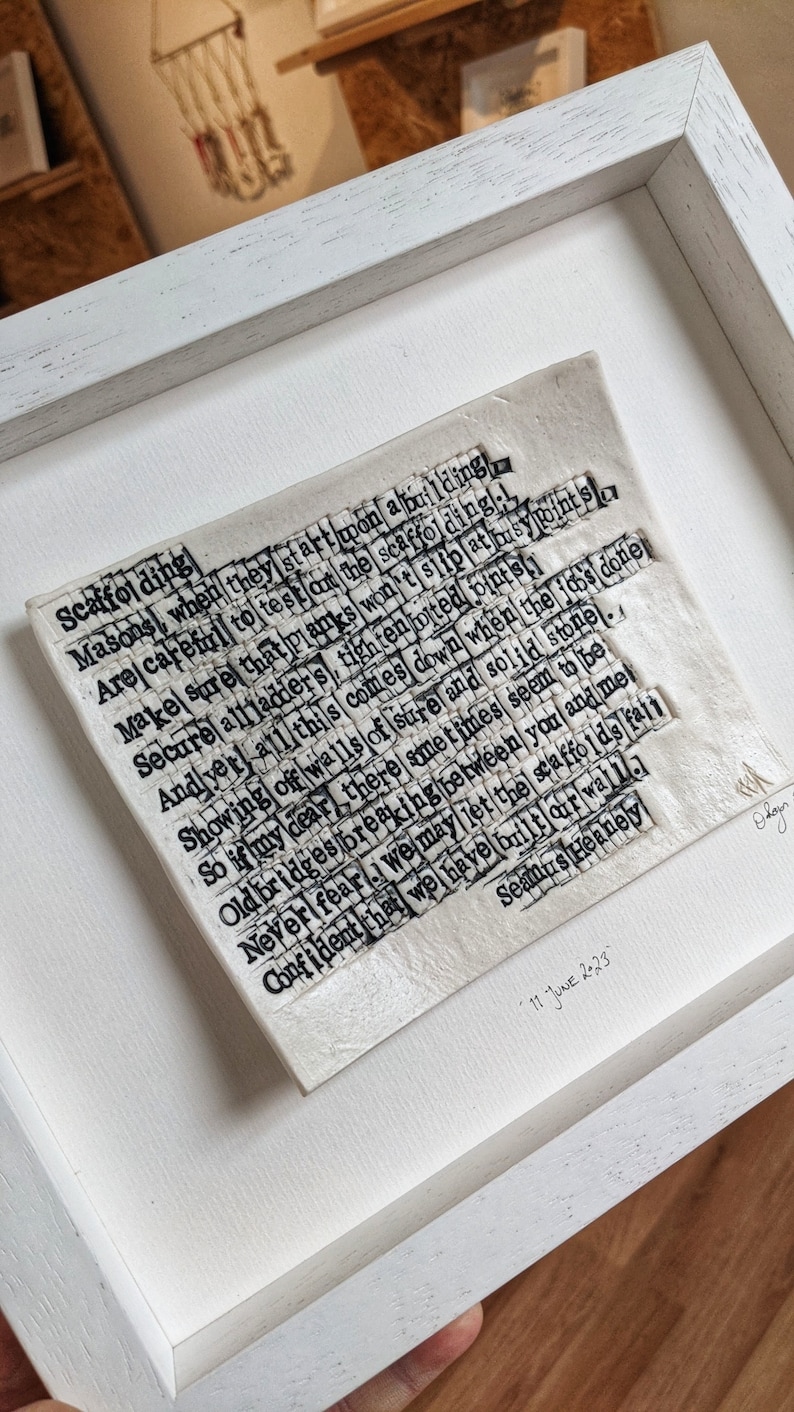 Scaffolding
Masons, when they start upon a building,
Are careful to test out the scaffolding.
Make sure that planks won't slip at busy points,
Secure all ladders, tighten bolted joints,
And yet, all this comes down when the jobs done
Showing off walls of sure and solid stone.
So if my dear, there smetimes seem to be
Old bridges breaking between you and me,
Never fear. We may let the scaffolds fall
Confident that we have built our wall.
Seamus Heaney
'11 JUNE 2023'